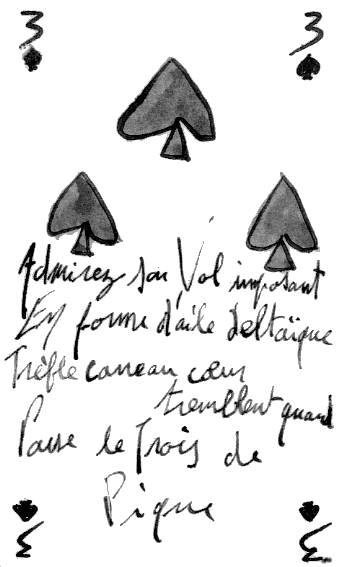 3 3
Admirez son Vol imposant
En forme d'aile deltaïque
Trèfle carreau cœur
tremblent quand
Passe le Trois de
Pique
3 3